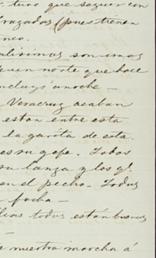 tuvo que seguir con
brazadas (pues tienen
unco.
alisimas son unas
un norte que hace
incluyó anoche —
Veracruz acaban
estan entre esta
la garita de esta.
es su gefe. Todos
su lanza y los gl
en el pecho. Todos
fecha —
lias todas estan buenas
—
e nuestra marcha á